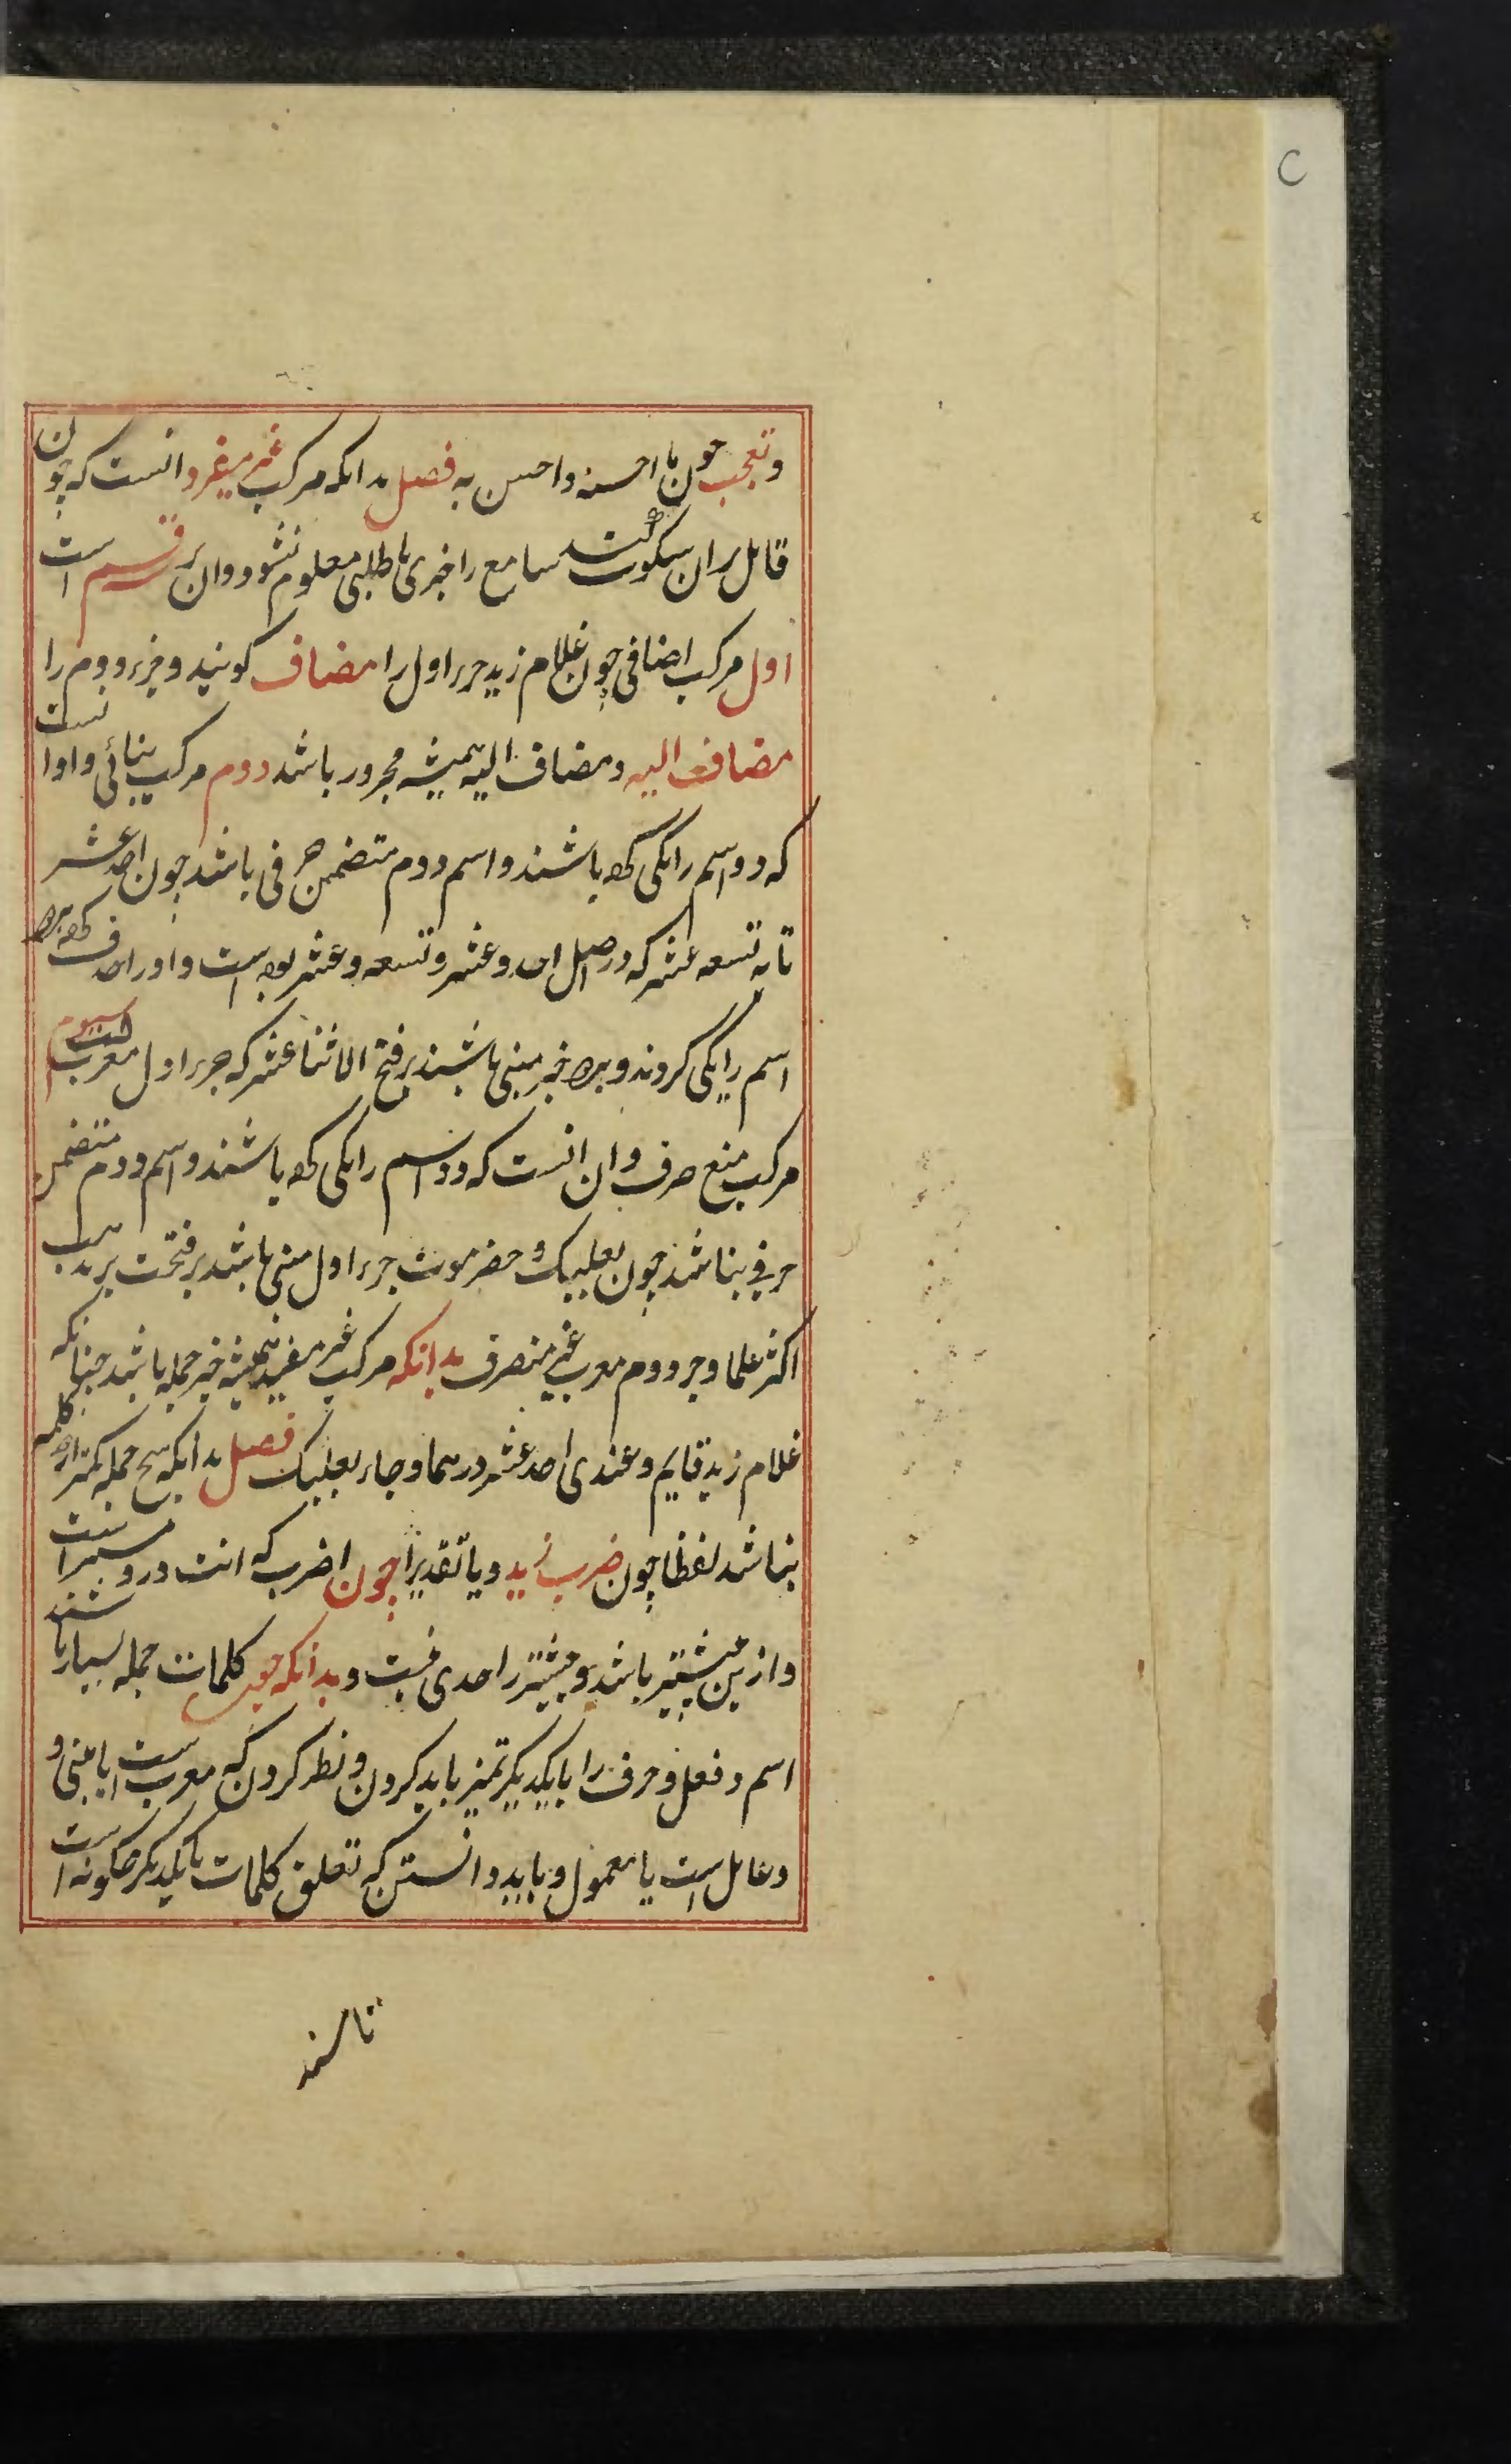 وتعجب چون ما احسنه واحسن به فصل بدانکه مرکب غیر مفید آنست که چون
قایل بران سکوت کند سامع را خبری یا طلبی معلوم نشود و ان بر سه قسم است
اول مرکب اضافی چون غلام زید جزء اول را مضاف گویند و جزء دوم را
مضاف الیه و مضاف الیه همیشه مجرور باشد دوم مرکب بنائی و او انست
که دو اسم را یکی کرده باشند و اسم دوم متضمن حرفی باشد چون احد عشر
تا به تسعه عشر که در اصل احد و عشر و تسعه و عشر بوده است واو را حذف کرده هر دو
اسم را یکی کردند و هر دو جزء مبنی باشند بر فتح الا اثنا عشر که جزء اول معرب است سیوم
مرکب منع صرف و ان انست که دو اسم را یکی کرده باشند و اسم دوم متضمن
حرفی نباشد چون بعلبک و حضرموت جزء اول مبنی باشد بر فتحت بر مذهب
اکثر علما و جزء دوم معرب غیر منصرف بدانکه مرکب غیر مفید همیشه جزء جمله باشد چنانکه
غلام زید قایم و عندی احد عشر درهما و جاء بعلبک فصل بدانکه هیچ جمله کمتر از دو کلمه
نباشد لفظا چون ضرب زید و یا تقدیرا چون اضرب که انت درو مستتر است
و ازین بیشتر باشد و بیشتر را حدی نیست و بدانکه چون کلمات جمله بسیار باشند
اسم و فعل و حرف را با یکدیکر تمیز باید کردن و نظر کردن که معرب است یا مبنی و
و عامل است یا معمول و باید دانستن که تعلق کلمات با یکدیکر چکونه است
تا مسند